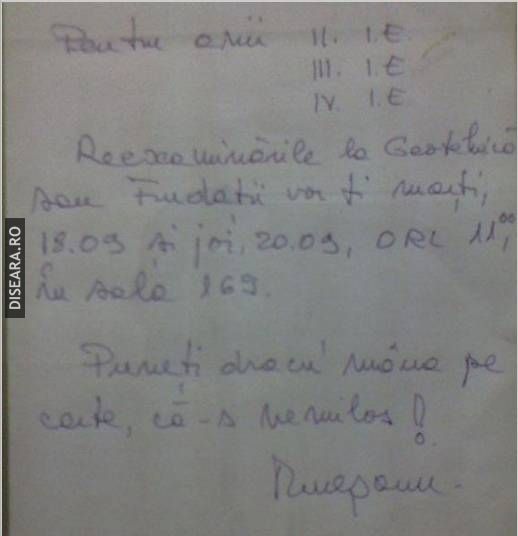 Pentru anii II. I.E
III. I.E
IV. I.E
Reexaminările la Geotehică
sau Fundații vor fi marți,
18.09 și joi, 20.09, ORL 11,00
în sala 169.
Puneți dracu' mâna pe
carte, că-s nemilos!
DISEARA.RO